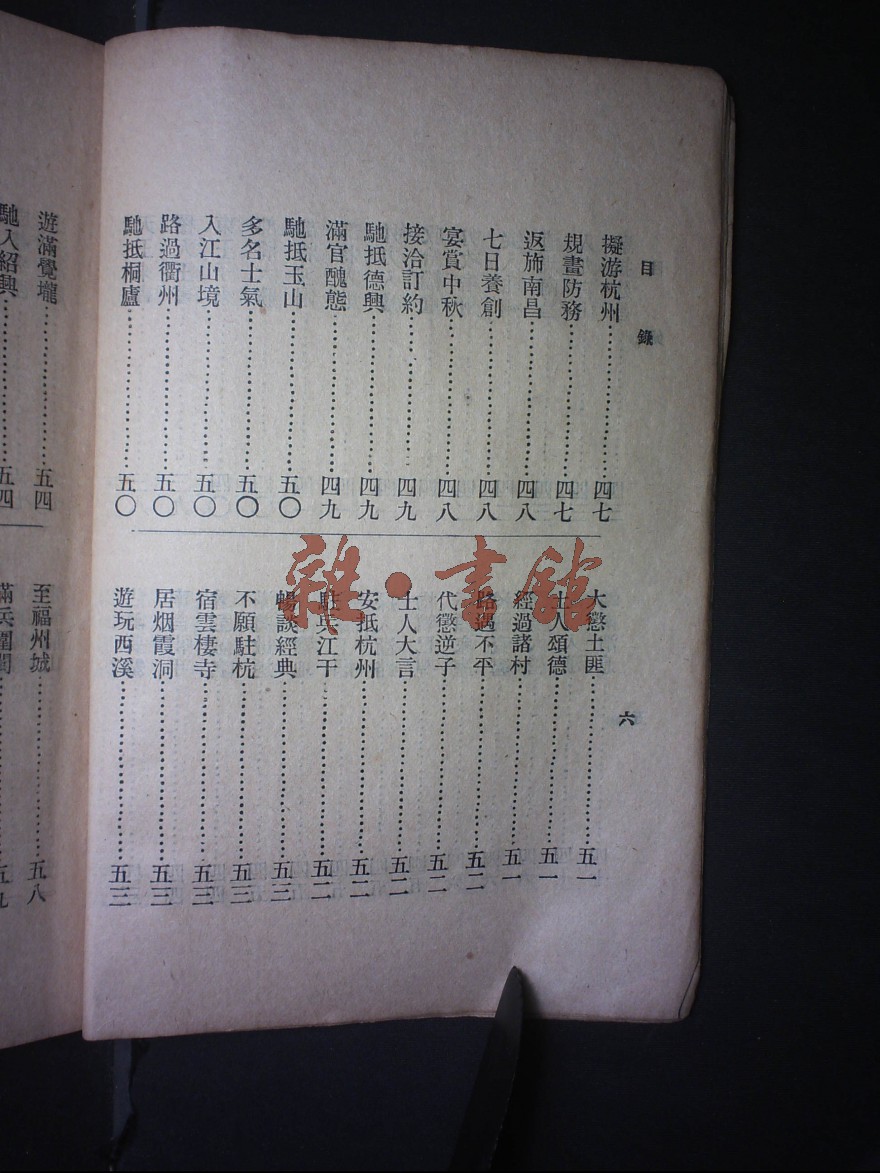 目錄
擬游杭州⋯⋯⋯⋯四七
規畫防務⋯⋯⋯⋯四七
返旆南昌⋯⋯⋯⋯四八
七日養創⋯⋯⋯⋯四八
宴賞中秋⋯⋯⋯⋯四八
接洽訂約⋯⋯⋯⋯四九
馳抵德興⋯⋯⋯⋯四九
滿官醜態⋯⋯⋯⋯四九
馳抵玉山⋯⋯⋯⋯五〇
多名士氣⋯⋯⋯⋯五〇
入江山境⋯⋯⋯⋯五〇
路過衢州⋯⋯⋯⋯五〇
馳抵桐廬⋯⋯⋯⋯五〇
大懲土匪⋯⋯⋯⋯五一
土人頌德⋯⋯⋯⋯五一
經過諸村⋯⋯⋯⋯五一
路遇不平⋯⋯⋯⋯五二
代懲逆子⋯⋯⋯⋯五二
士人大言⋯⋯⋯⋯五二
安抵杭州⋯⋯⋯⋯五二
駐兵江干⋯⋯⋯⋯五二
暢談經典⋯⋯⋯⋯五三
不願駐杭⋯⋯⋯⋯五三
宿雲棲寺⋯⋯⋯⋯五三
居烟霞洞⋯⋯⋯⋯五三
遊玩西溪⋯⋯⋯⋯五三
六
遊滿覺壠⋯⋯⋯⋯五四
馳入紹興⋯⋯⋯⋯五四
至福州城⋯⋯⋯⋯五八
滿兵圍閩⋯⋯⋯⋯五九
雜·書館